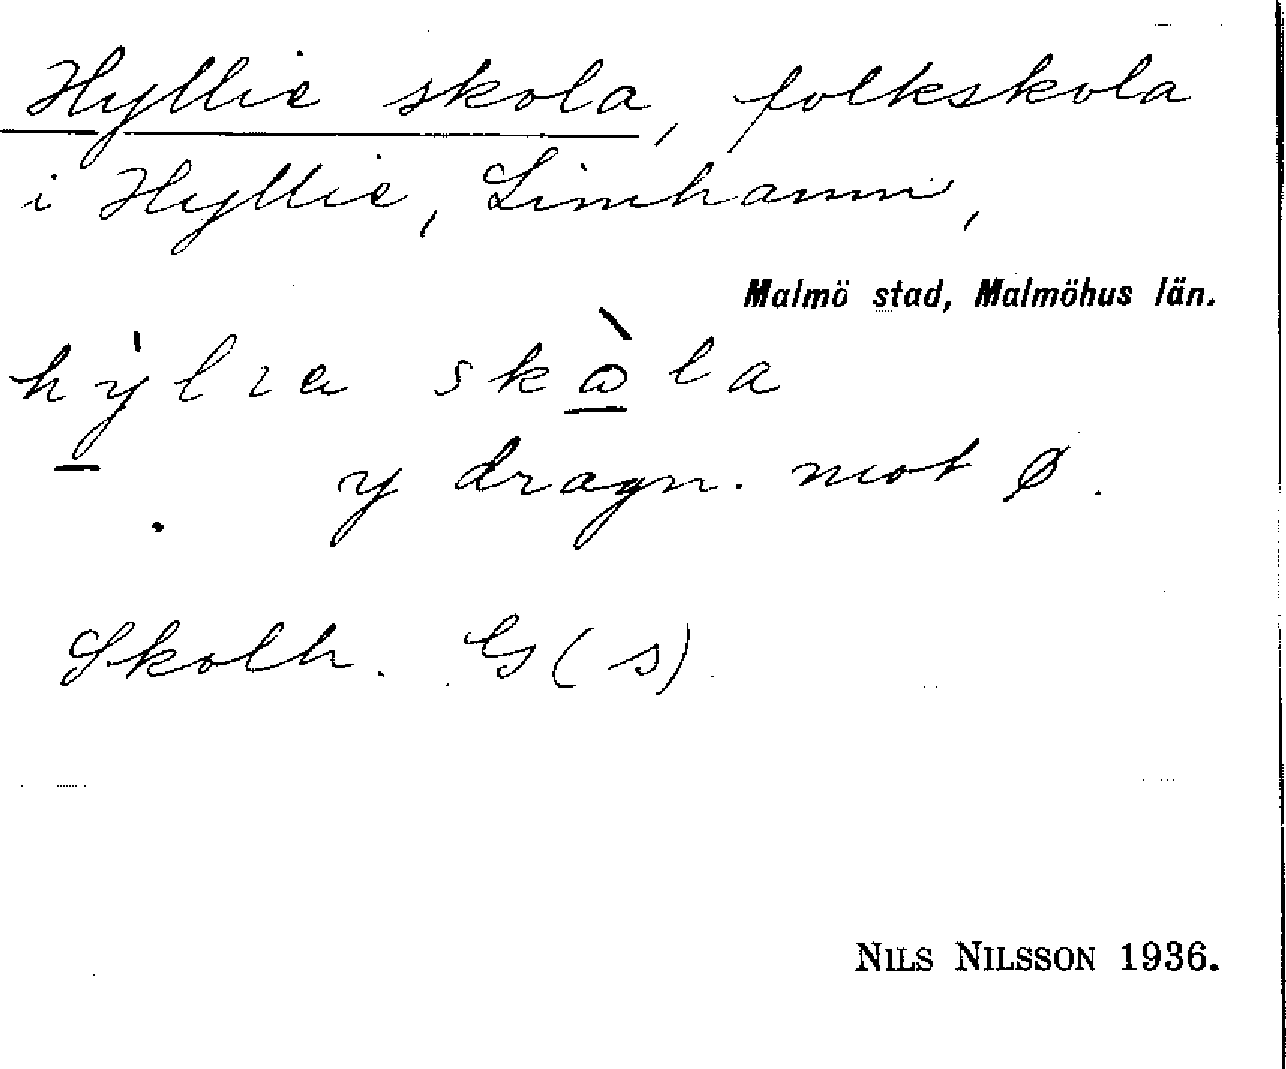 Hyllie skola, folkskola
i Hyllie, Limhamn,
Malmö stad, Malmöhus län.
hy̱̍lıa skò̱la
y dragn. mot ø.
Skolh. G(s)
NILS NILSSON 1936.